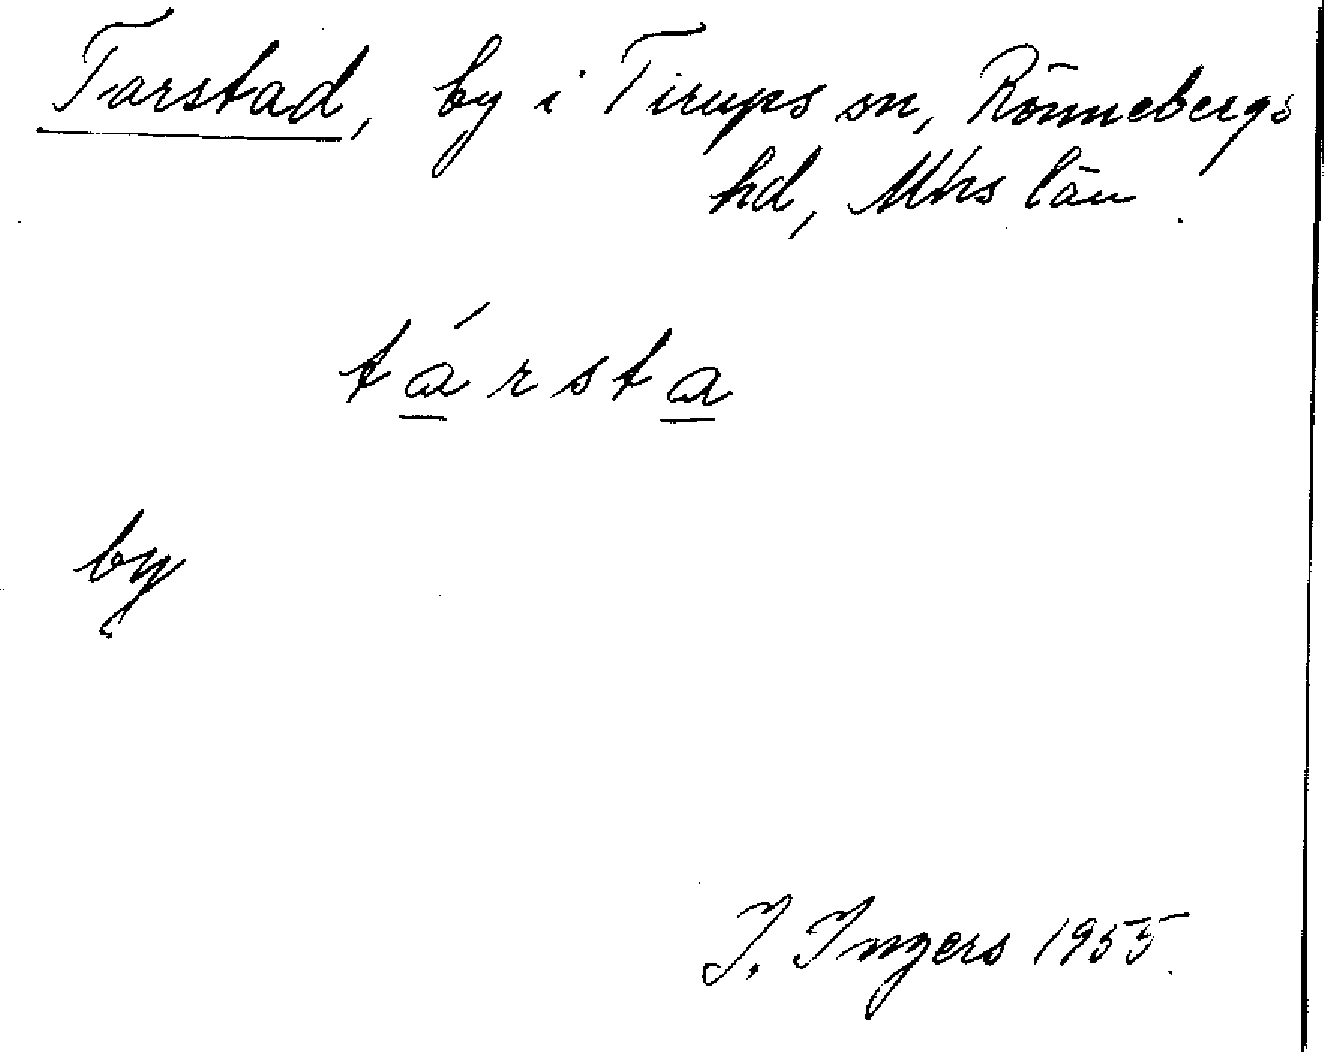 Tarstad, by i Tirups sn, Rönnebergs
hd, Mhs län.
társta
by
I. Ingers 1955.